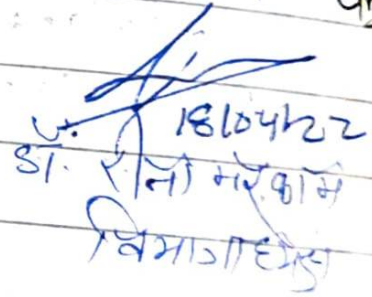 18/04/22
डॉ. रानी मरकाम
विभागाध्यक्ष